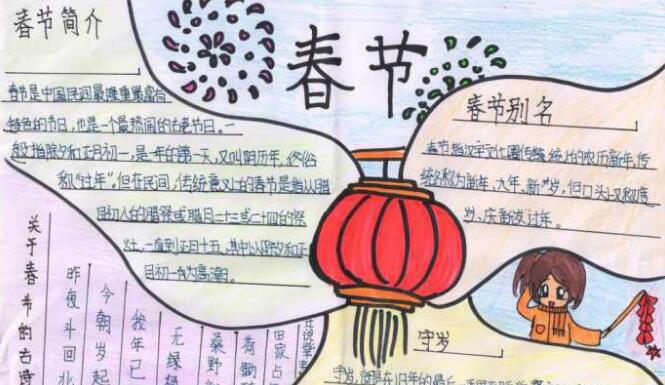 春节
春节简介
春节是中国民间最隆重最富有
特色的节日,也是一个最热闹的古老节日。一
般指除夕和正月初一,是一年的第一天,又叫阴历年,俗称
和"过年"。但在民间,传统意义上的春节是指从腊
月初八的腊祭或腊月二十三或二十四的祭
灶,一直到正月十五,其中以除夕和正
月初一为高潮。
春节别名
春节指汉字文化圈传统上的农历新年,传
统名称为新年、大年、新岁,但口头又称度
岁、庆新岁、过年。
关于春节的古诗
昨夜斗回北
今朝岁起
我年已
无禄
桑野
荷锄
田家占
守岁
守岁,就是在旧年的最后